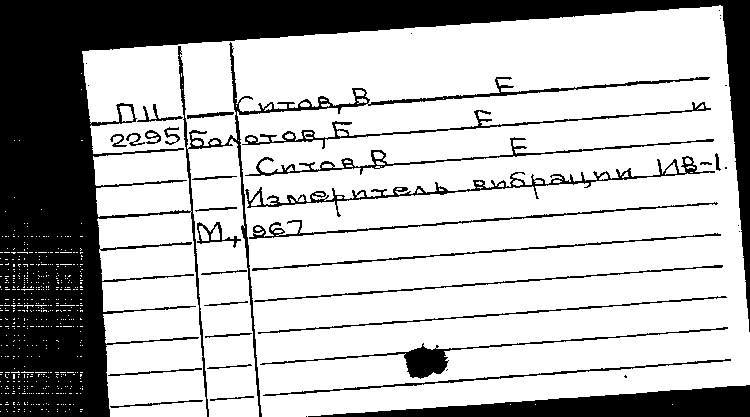 П11 Ситов, В Е
2295 Болотов, Б Е и
Ситов, В Е
Измеритель вибрации ИВ-1.
М., 1967